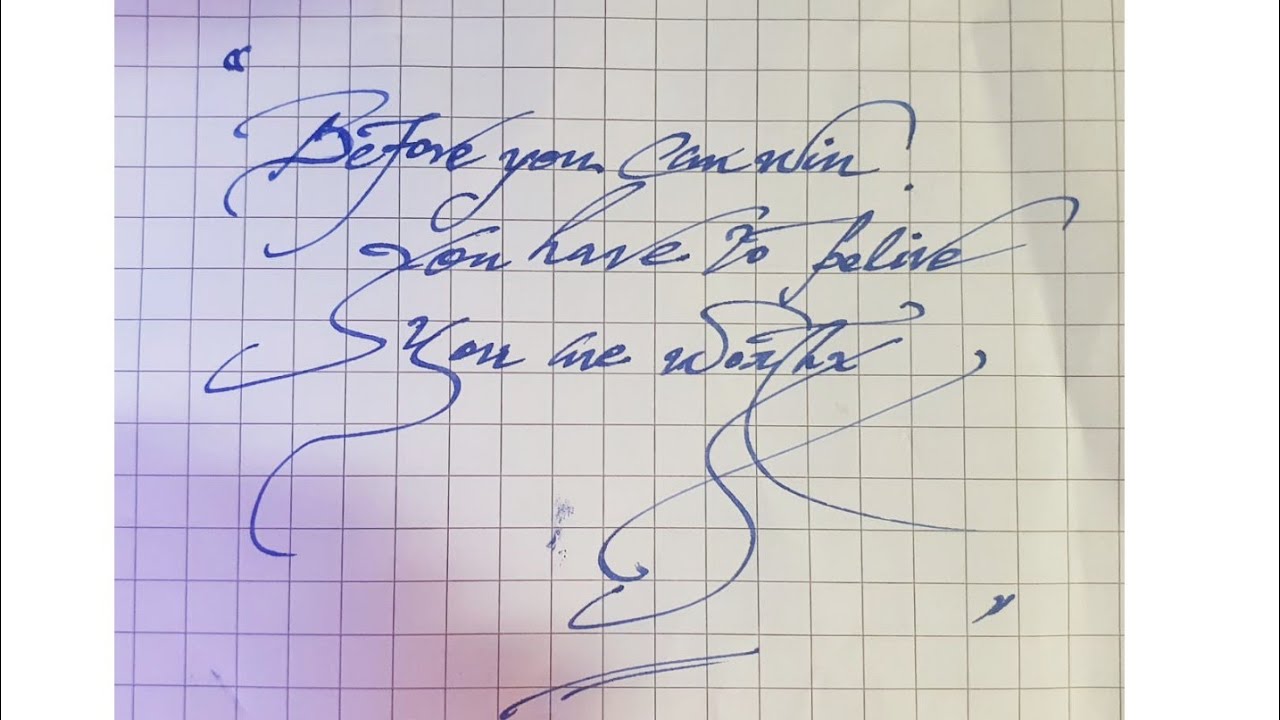 "Before you can win!
You have to belive
You are worthy"